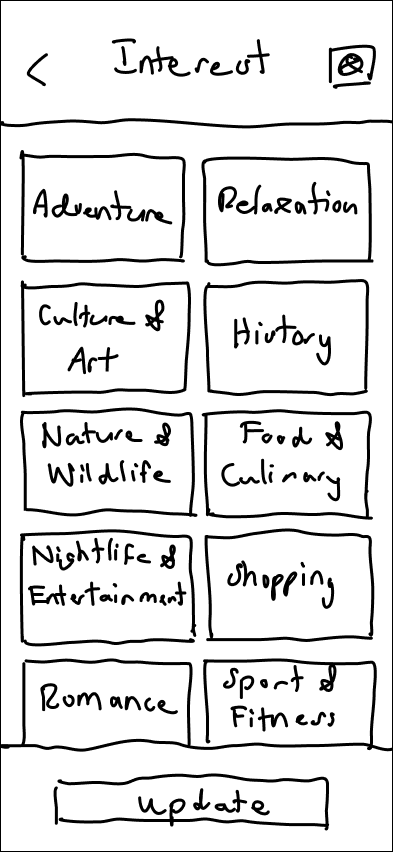 Interest
Adventure
Relaxation
Culture &
Art
History
Nature &
Wildlife
Food &
Culinary
Nightlife &
Entertainment
Shopping
Romance
Sport &
Fitness
update